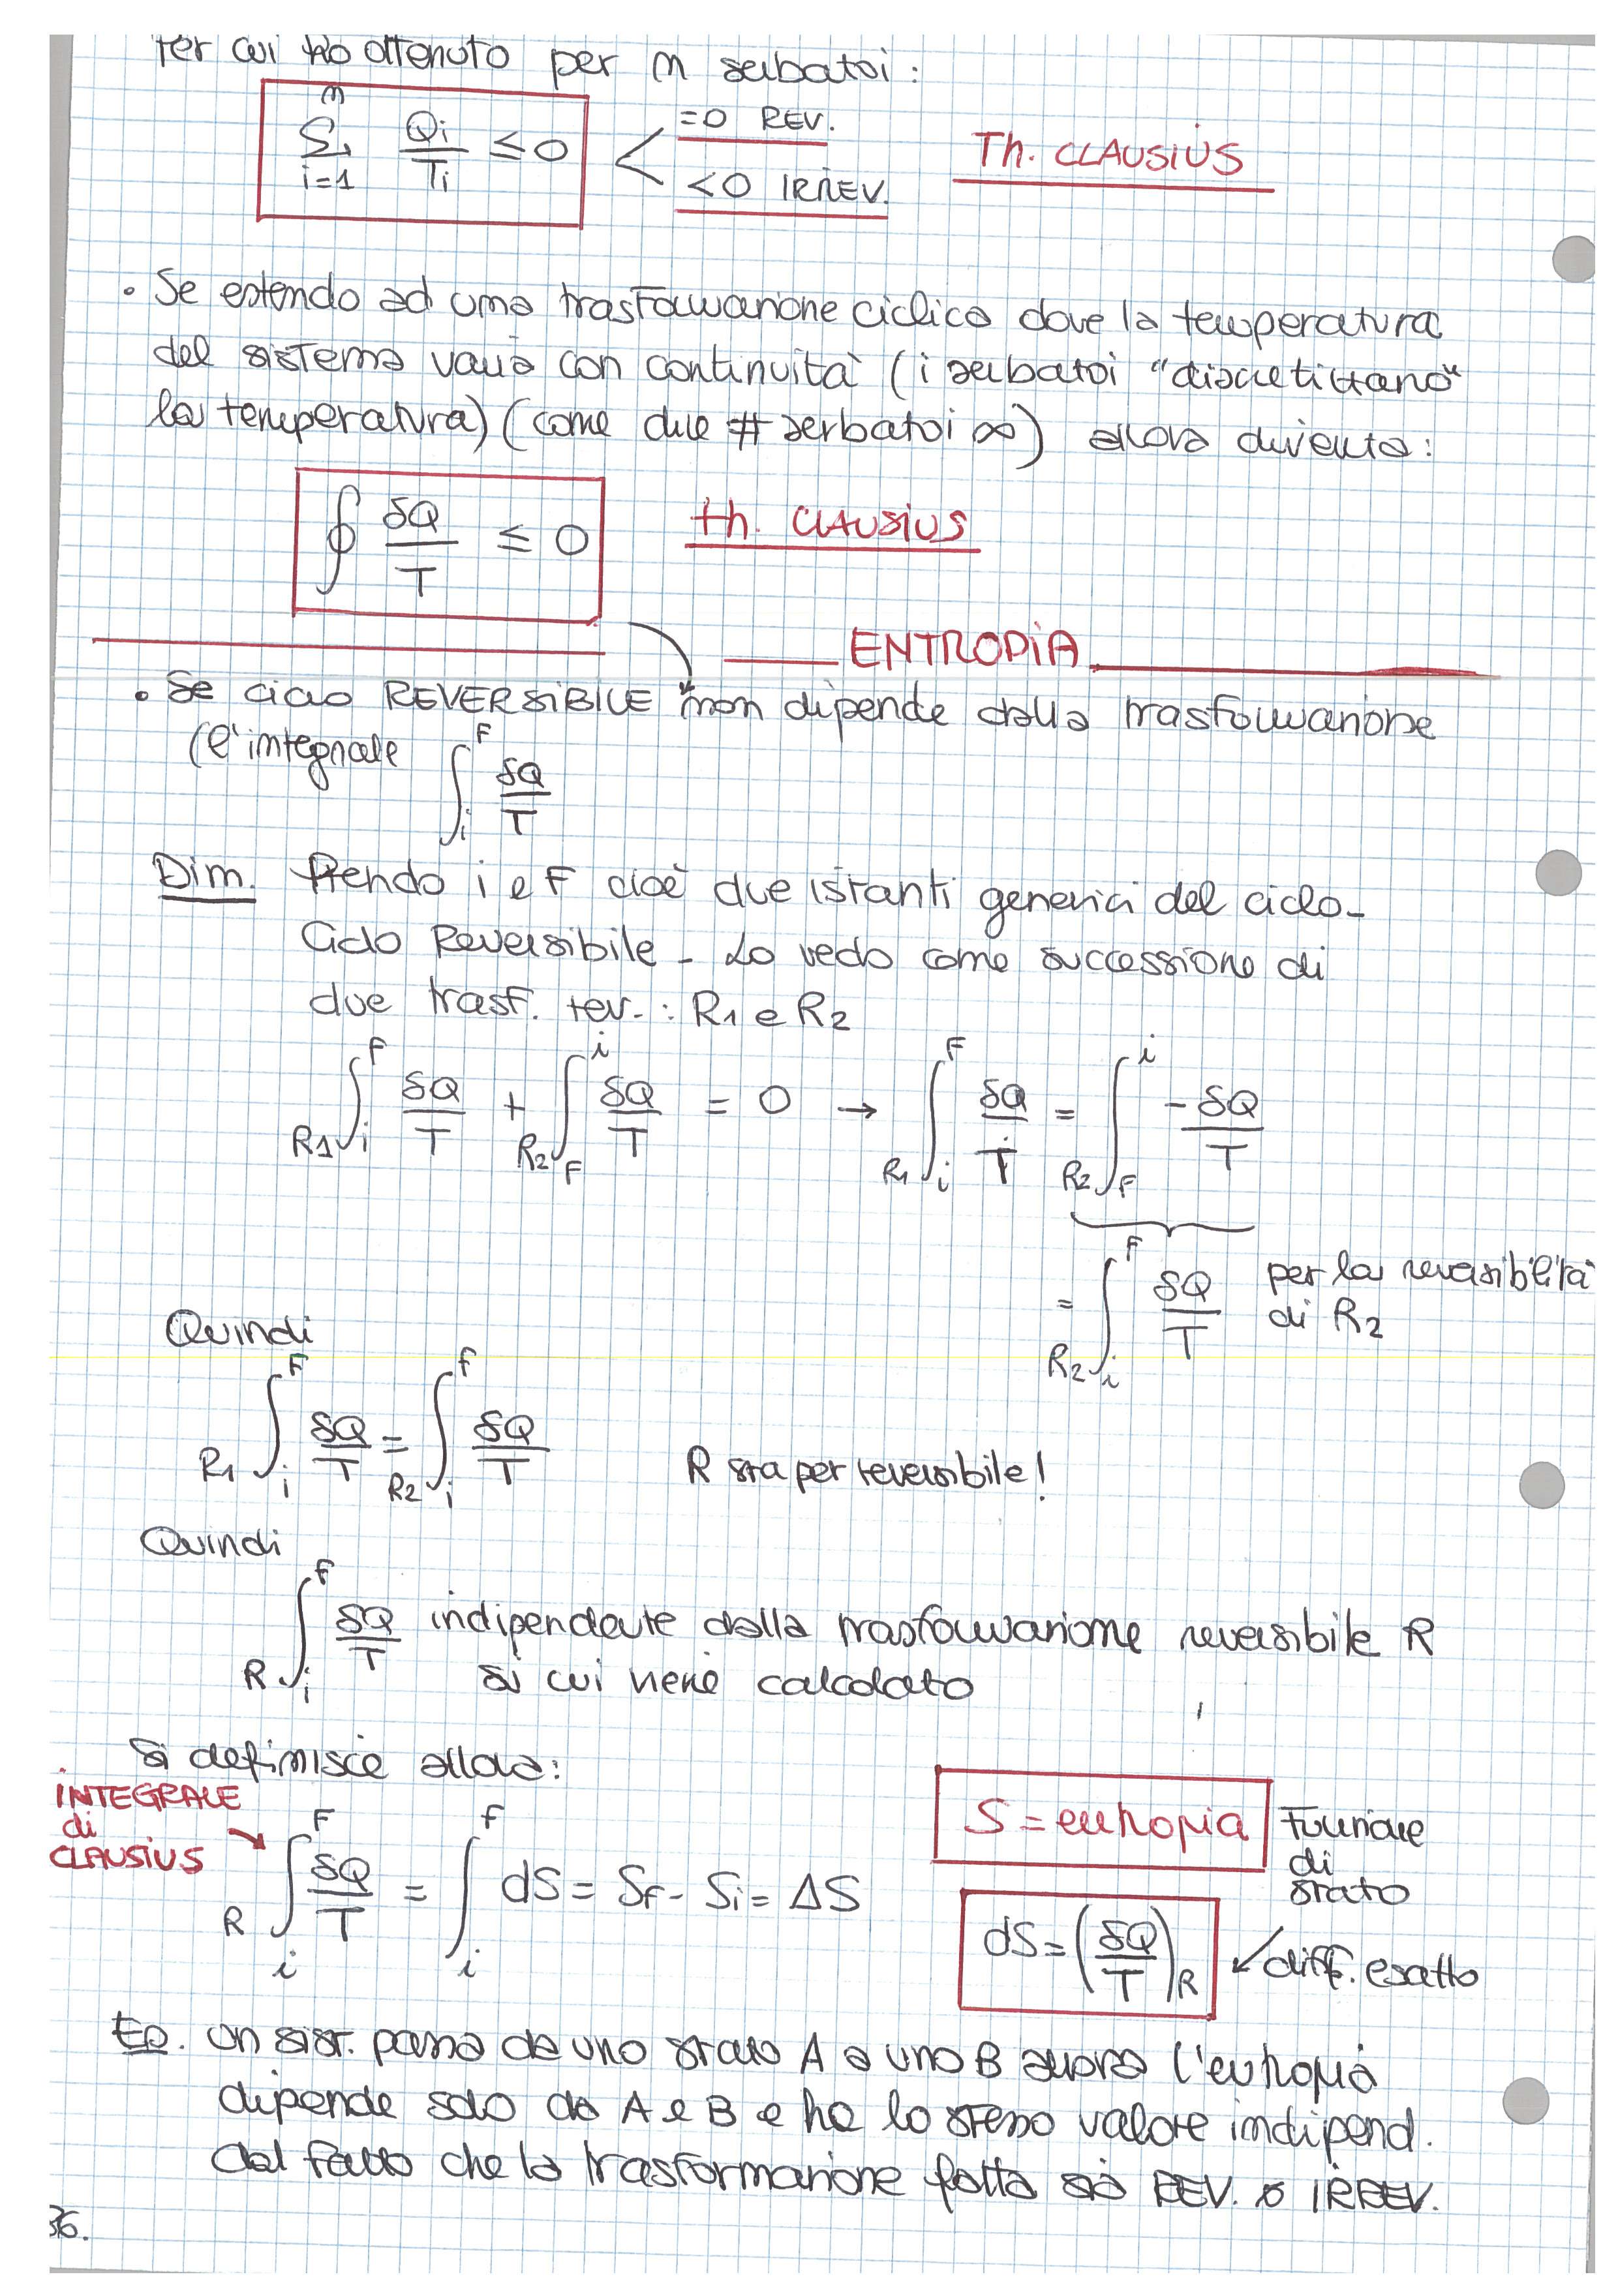 Per cui ho ottenuto per n serbatoi:
n
Σ Qi/Ti ≤ 0 < =0 REV.
i=1
<0 IRREV.
Th. CLAUSIUS
• Se estendo ad una trasformazione ciclica dove la temperatura
del sistema varia con continuità (i serbatoi "discretizzano"
la temperatura) (come due # serbatoi ∞) allora diventa:
∮ δQ/T ≤ 0 th. CLAUSIUS
ENTROPIA
• Se ciclo REVERSIBILE non dipende dalla trasformazione
(l'integrale ∫_i^F δQ/T
Dim. Prendo i e F cioè due istanti generici del ciclo-
Ciclo Reversibile - Lo vedo come successione di
due trasf. rev.: R1 e R2
R1 ∫_i^F δQ/T + R2 ∫_F^i δQ/T = 0 → R1 ∫_i^F δQ/T = R2 ∫_F^i -δQ/T
= R2 ∫_i^F δQ/T per la reversibilità
di R2
Quindi
R1 ∫_i^F δQ/T = R2 ∫_i^F δQ/T R sta per reversibile!
Quindi
R ∫_i^F δQ/T indipendente dalla trasformazione reversibile R
di cui viene calcolato
Si definisce allora:
INTEGRALE
di
CLAUSIUS
R ∫_i^F δQ/T = ∫_i^F dS = SF - Si = ΔS
S = entropia Funzione
di
stato
dS = (δQ/T)R ↙ diff. esatto
Es. Un sist. passa da uno stato A a uno B allora l'entropia
dipende solo da A e B e ha lo stesso valore indipend.
dal fatto che la trasformazione fatta sia REV. o IRREV.
36.